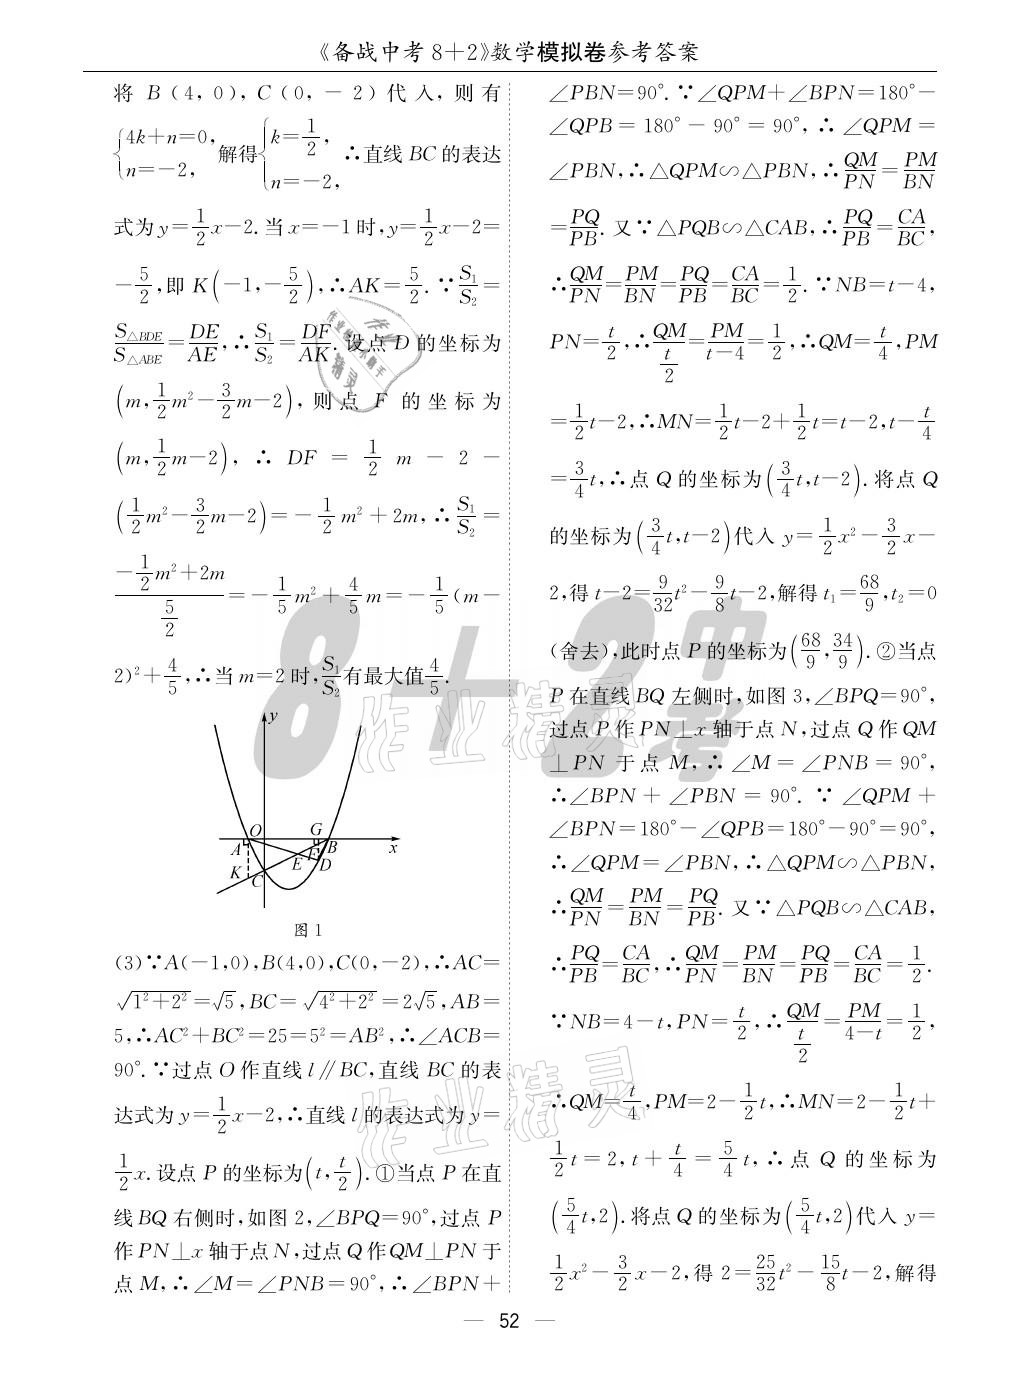 《备战中考8+2》数学模拟卷参考答案
将 B(4, 0), C(0, -2)代入, 则有
{4k+n=0, n=-2, 解得{k=1/2, n=-2, ∴直线BC的表达
式为y=1/2x-2.当x=-1时,y=1/2x-2=
-5/2,即K(-1,-5/2),∴AK=5/2.∵S₁/S₂=
S△BDE/S△ABE=DE/AE,∴S₁/S₂=DF/AK.设点D的坐标为
(m,1/2m²-3/2m-2), 则点 F 的坐标为
(m,1/2m-2), ∴ DF = 1/2 m - 2 -
(1/2m²-3/2m-2)=-1/2m²+2m,∴S₁/S₂=
(-1/2m²+2m)/(5/2)=-1/5m²+4/5m=-1/5(m-
2)²+4/5,∴当m=2时,S₁/S₂有最大值4/5.
y
O
G
A
B
x
E
F
D
K
C
图1
(3)∵A(-1,0),B(4,0),C(0,-2),∴AC=
√(1²+2²)=√5,BC=√(4²+2²)=2√5,AB=
5,∴AC²+BC²=25=5²=AB²,∴∠ACB=
90°.∵过点O作直线l∥BC,直线BC的表
达式为y=1/2x-2,∴直线l的表达式为y=
1/2x.设点P的坐标为(t,t/2).①当点P在直
线BQ右侧时,如图2,∠BPQ=90°,过点P
作PN⊥x轴于点N,过点Q作QM⊥PN于
点M,∴∠M=∠PNB=90°,∴∠BPN+
∠PBN=90°.∵∠QPM+∠BPN=180°-
∠QPB=180°-90°=90°,∴∠QPM=
∠PBN,∴△QPM∽△PBN,∴QM/PN=PM/BN
=PQ/PB.又∵△PQB∽△CAB,∴PQ/PB=CA/BC,
∴QM/PN=PM/BN=PQ/PB=CA/BC=1/2.∵NB=t-4,
PN=t/2,∴QM/(t/2)=PM/(t-4)=1/2,∴QM=t/4,PM
=1/2t-2,∴MN=1/2t-2+1/2t=t-2,t-t/4
=3/4t,∴点Q的坐标为(3/4t,t-2).将点Q
的坐标为(3/4t,t-2)代入y=1/2x²-3/2x-
2,得t-2=9/32t²-9/8t-2,解得t₁=68/9,t₂=0
(舍去),此时点P的坐标为(68/9,34/9).②当点
P在直线BQ左侧时,如图3,∠BPQ=90°,
过点P作PN⊥x轴于点N,过点Q作QM
⊥PN于点M,∴∠M=∠PNB=90°,
∴∠BPN+∠PBN=90°.∵∠QPM+
∠BPN=180°-∠QPB=180°-90°=90°,
∴∠QPM=∠PBN,∴△QPM∽△PBN,
∴QM/PN=PM/BN=PQ/PB.又∵△PQB∽△CAB,
∴PQ/PB=CA/BC,∴QM/PN=PM/BN=PQ/PB=CA/BC=1/2.
∵NB=4-t,PN=t/2,∴QM/(t/2)=PM/(4-t)=1/2,
∴QM=t/4,PM=2-1/2t,∴MN=2-1/2t+
1/2t=2,t+t/4=5/4t,∴点Q的坐标为
(5/4t,2).将点Q的坐标为(5/4t,2)代入y=
1/2x²-3/2x-2,得2=25/32t²-15/8t-2,解得
— 52 —
8+2中考
作业精灵
作业精灵